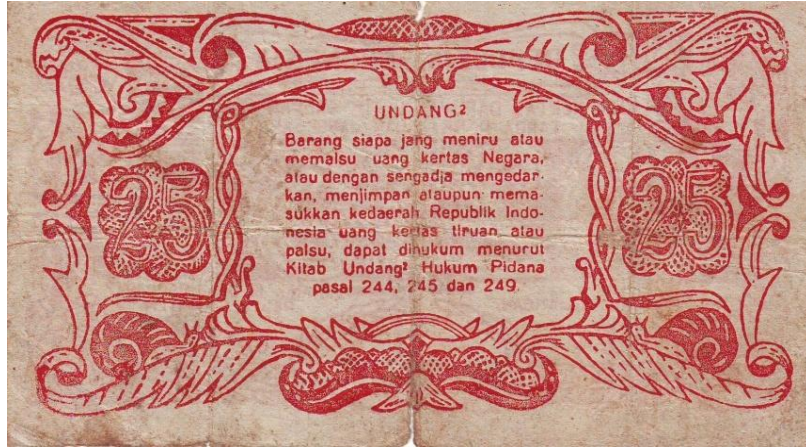 UNDANG²
Barang siapa jang meniru atau
memalsu uang kertas Negara,
atau dengan sengadja mengedar-
kan, menjimpan ataupun mema-
sukkan kedaerah Republik Indo-
nesia uang kertas tiruan atau
palsu, dapat dihukum menurut
Kitab Undang² Hukum Pidana
pasal 244, 245 dan 249.
25
25